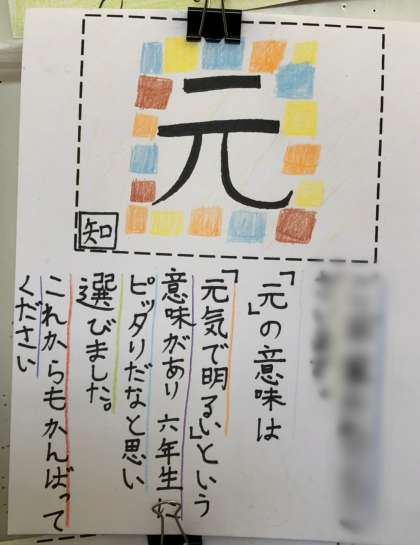 元
知
「元」の意味は
「元気で明るい」という
意味があり六年生に
ピッタリだなと思い
選びました。
これからもかんばって
ください